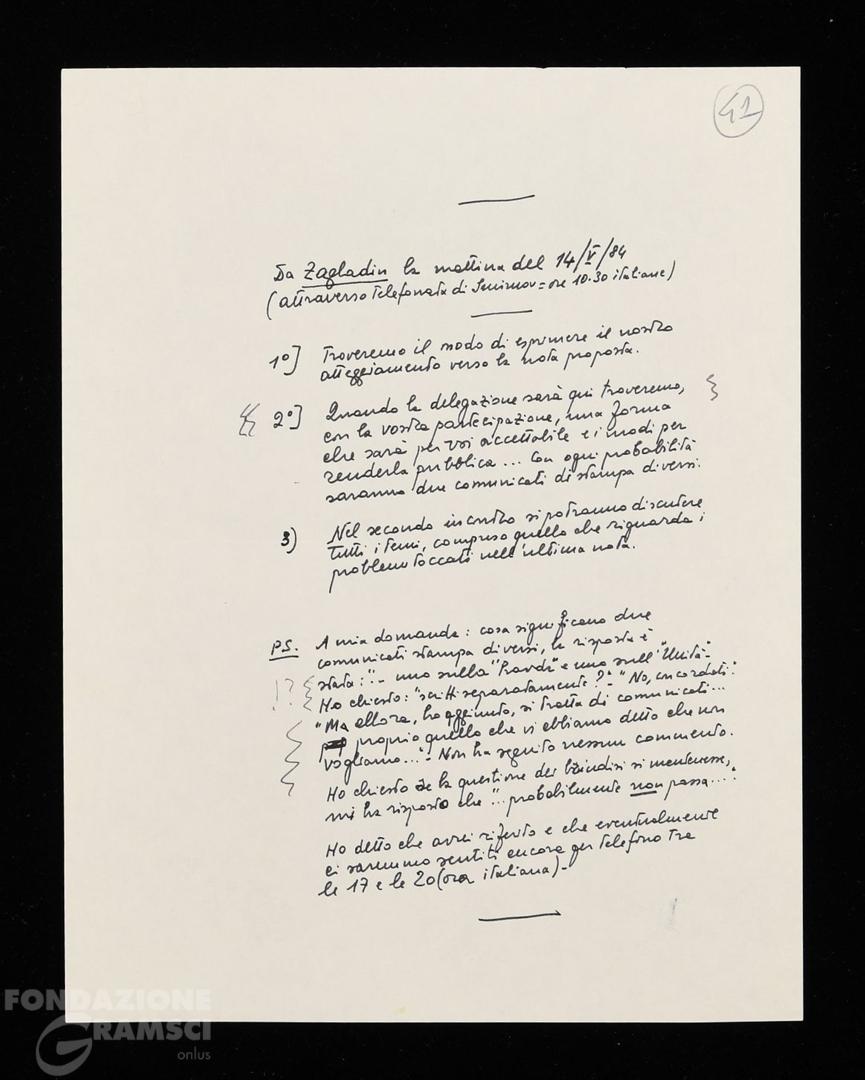 41
Da Zagladin la mattina del 14/V/84
(attraverso telefonata di Smirnov = ore 10.30 italiane)
1°] Troveremo il modo di esprimere il nostro
atteggiamento verso la nota proposta.
2°] Quando la delegazione sarà qui troveremo,
con la vostra partecipazione, una forma
che sarà per voi accettabile e i modi per
renderla pubblica... Con ogni probabilità
saranno due comunicati di stampa diversi.
3) Nel secondo incontro si potranno discutere
tutti i temi, compreso quello che riguarda i
problemi toccati nell'ultima nota.
P.S. A mia domanda: cosa significano due
comunicati stampa diversi, la risposta è
stata: "- uno sulla "Pravda" e uno sull'"Unità".
!? Ho chiesto: "scritti separatamente?" - "No, concordati".
"Ma allora, ho aggiunto, si tratta di comunicati...
proprio quello che vi abbiamo detto che non
vogliamo..." - Non ha seguito nessun commento.
Ho chiesto se la questione dei brindisi si mantenesse,
mi ha risposto che "...probabilmente non passa...".
Ho detto che avrei riferito e che eventualmente
ci saremmo sentiti ancora per telefono tra
le 17 e le 20 (ora italiana) -
FONDAZIONE
GRAMSCI
onlus